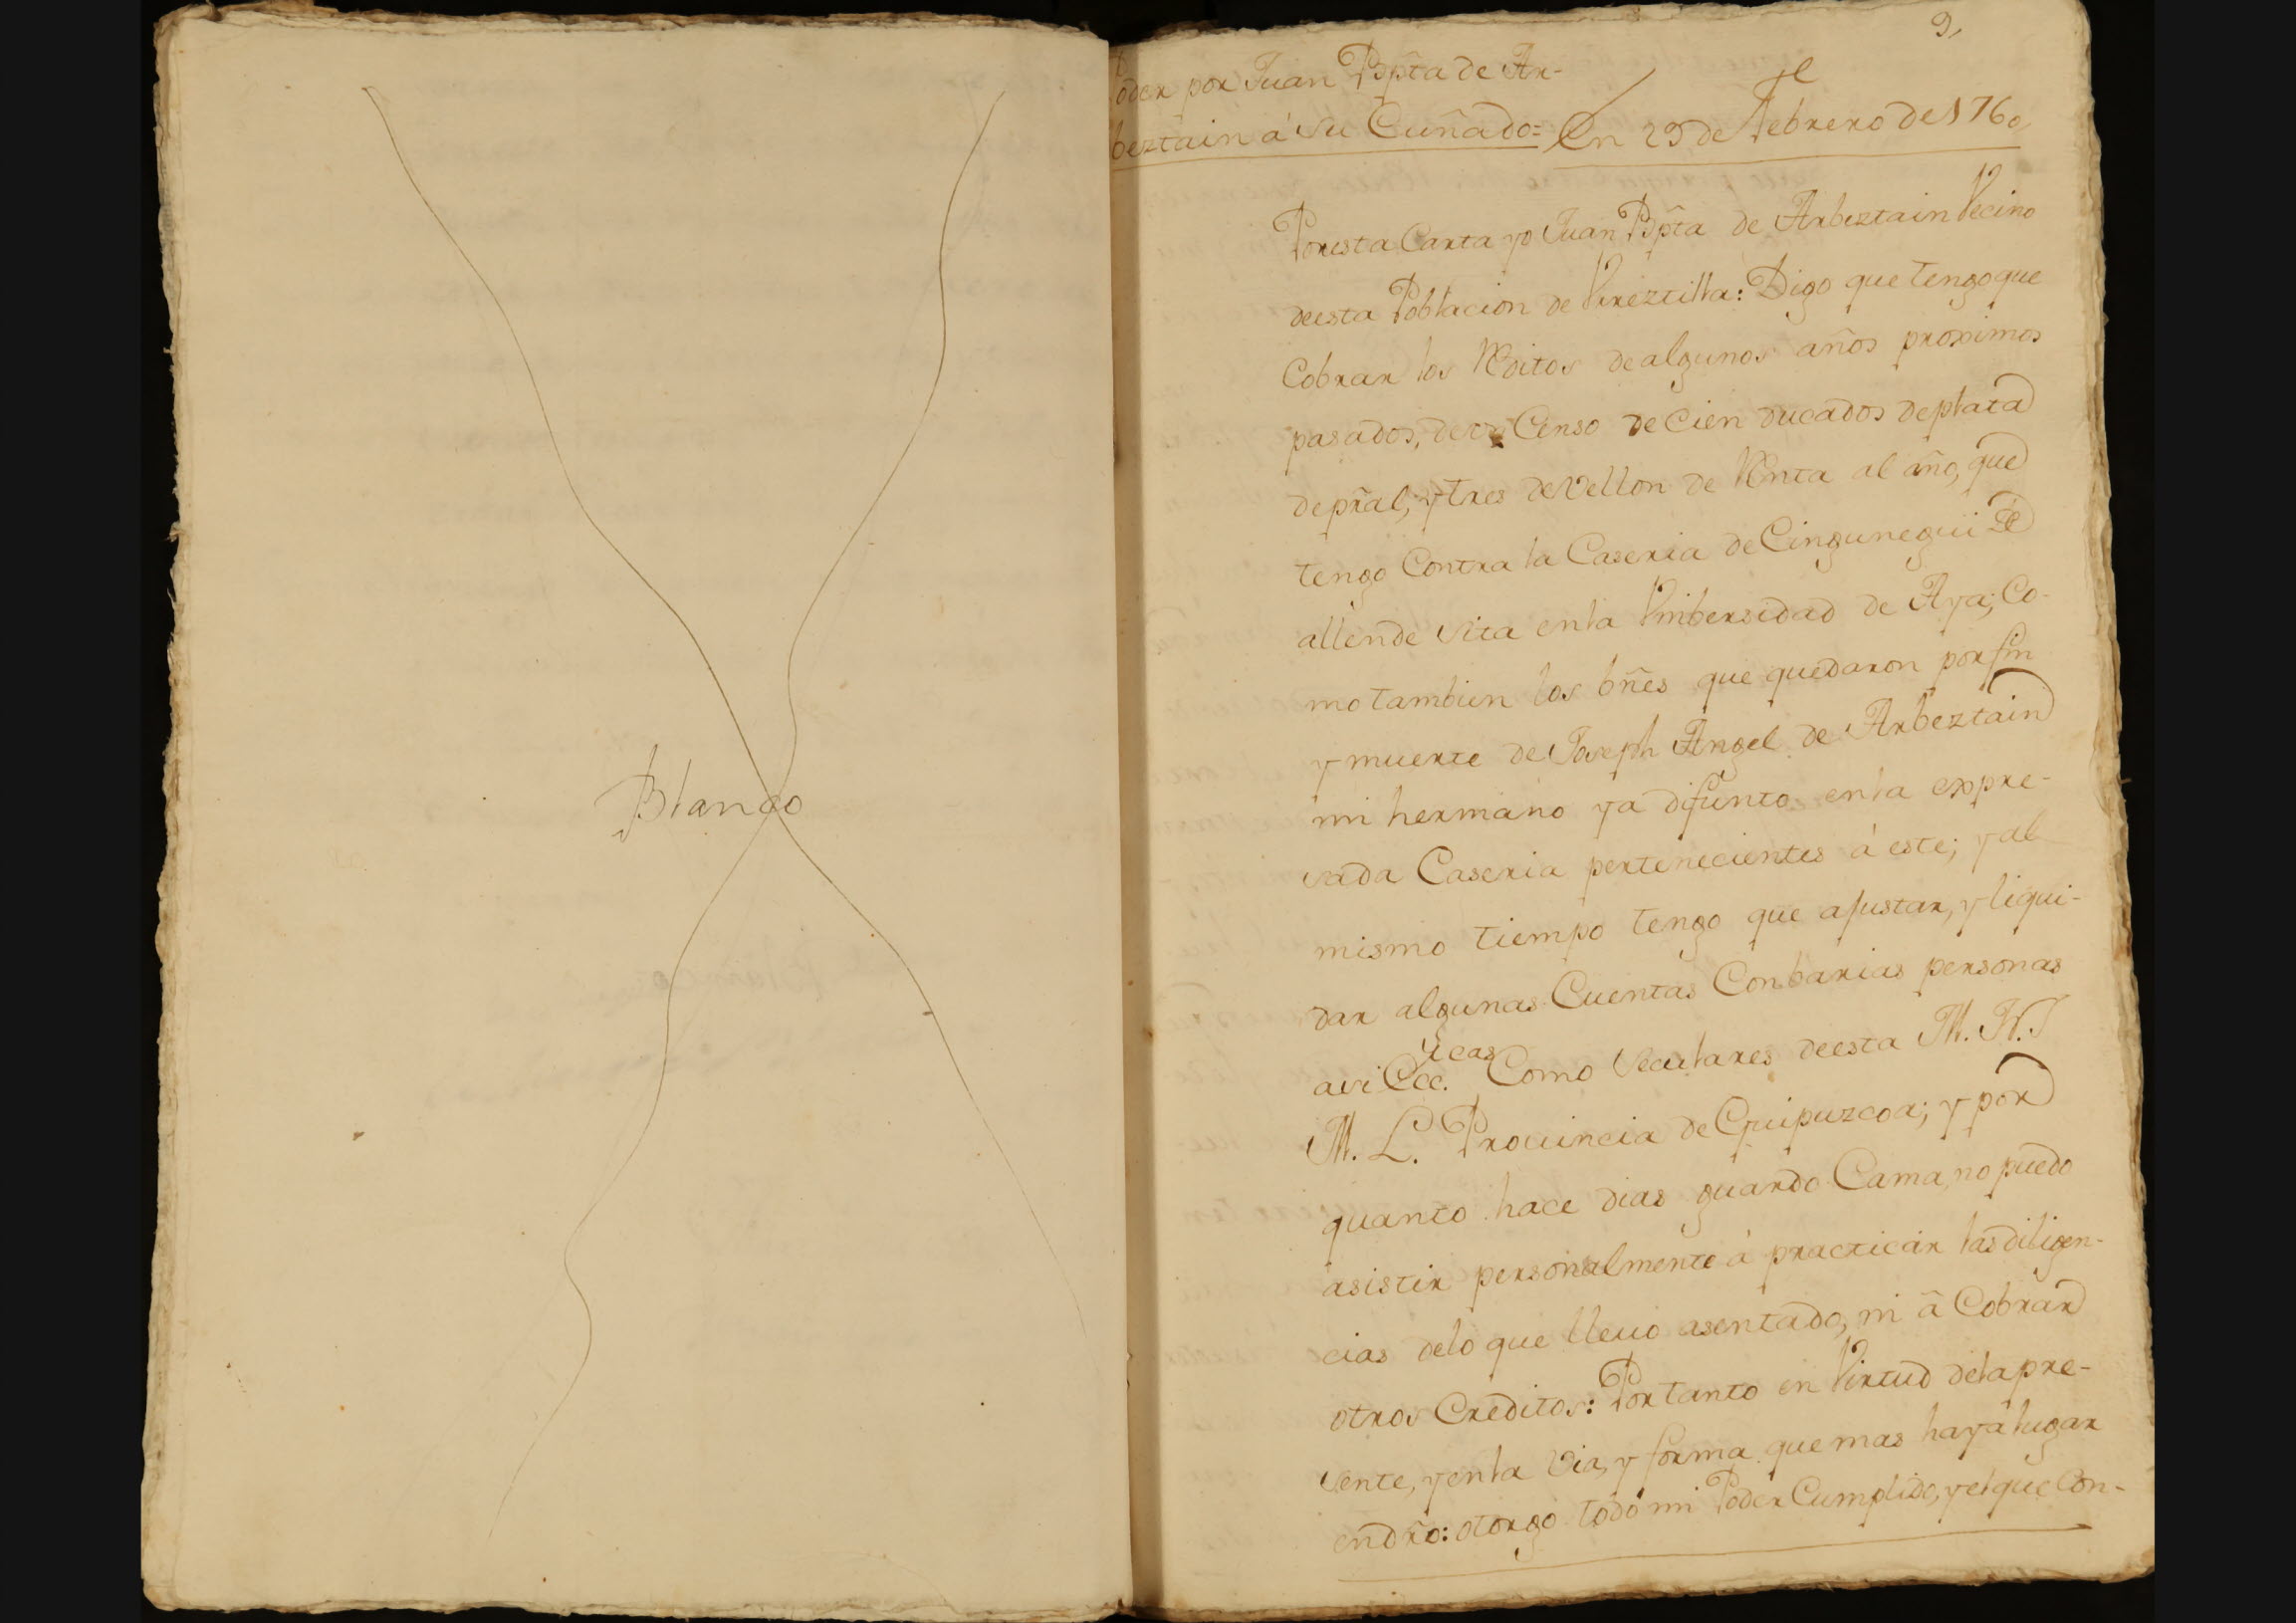 Blanco
9,
Poder por Juan Bp̃ta de Ar-
beztain á su Cuñado= En 29 de Febrero de 1760
Poresta Carta yo Juan Bp̃ta de Arbeztain Vecino
deesta Poblacion de Vrreztilla: Digo que tengo que
Cobrar los Reditos de algunos años proximos
pasados, de vn Censo de Cien ducados de plata
de pr̃al, y tres de Vellon de Renta al año, que
tengo Contra la Caseria de Cingunegui de
allende sita enla Vnibersidad de Aya; Co-
mo tambien los bñes que quedaron por fin
y muerte de Joseph Angel de Arbeztain
mi hermano ya difunto enla expre-
sada Caseria pertenecientes á este; y al
mismo tiempo tengo que ajustar, y liqui-
dar algunas Cuentas Conbarias personas
asi Ecc.ᵃˢ Como Seculares deesta M. N. I
M. L. Prouincia de Guipuzcoa; y por
quanto hace dias guardo Cama, no puedo
asistir personalmente á practicar las diligen-
cias delo que lleuo asentado, ni â Cobrar
otros Creditos: Por tanto en Virtud dela pre-
sente, y enla Via, y forma que mas haya lugar
en dr̃o: otorgo todo mi Poder Cumplido, y el que Con-